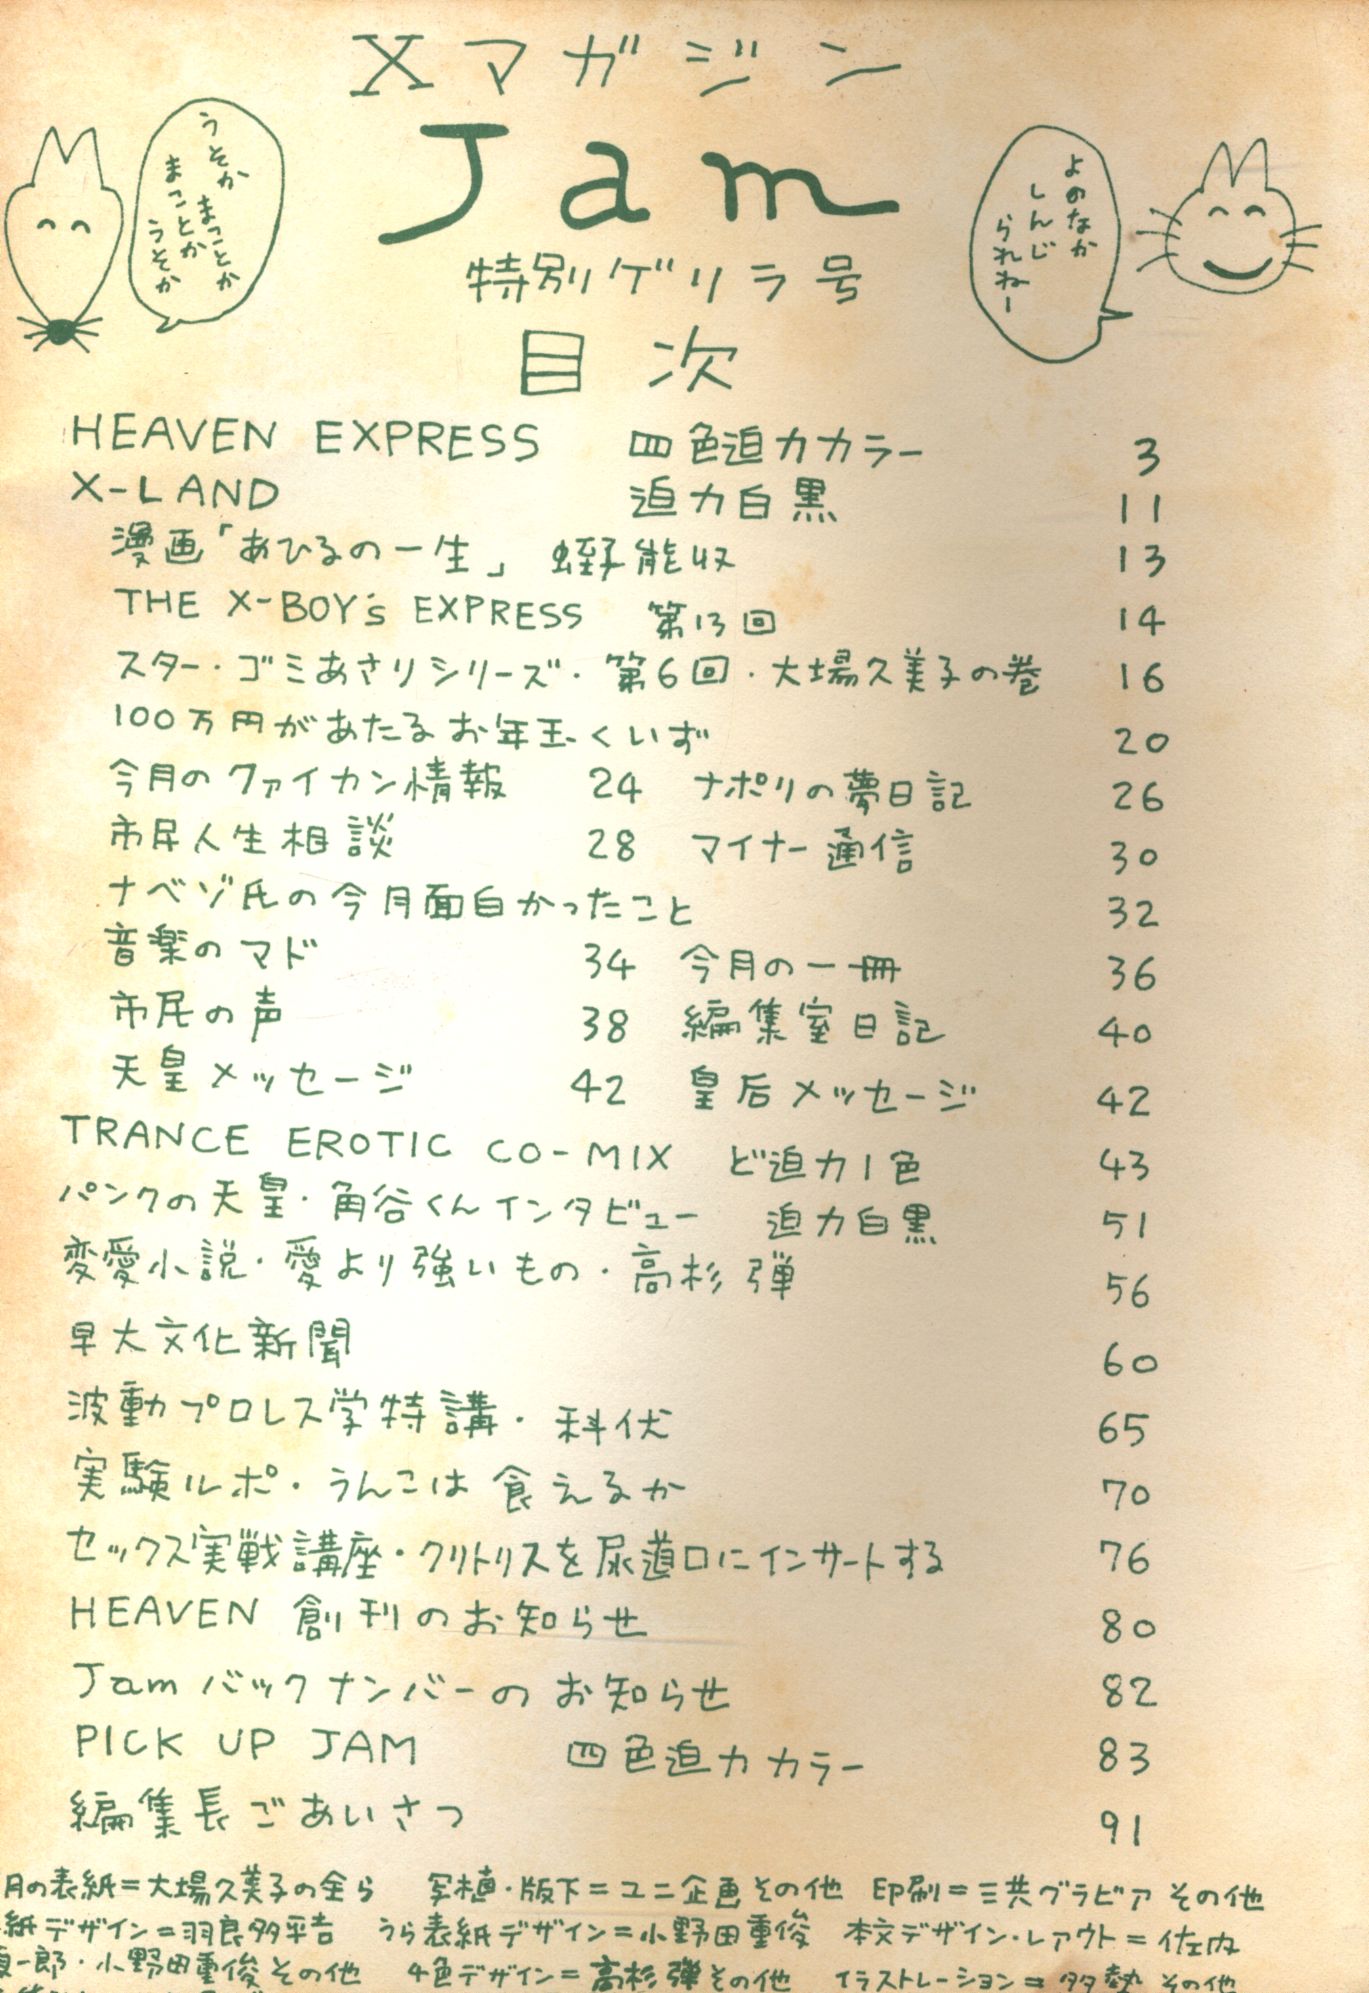 Xマガジン
うそか
まことか
まことか
うそか
Jam
よのなか
しんじ
られねー
特別ゲリラ号
目次
HEAVEN EXPRESS 四色迫力カラー 3
X-LAND 迫力白黒 11
漫画「あひるの一生」 蛭子能収 13
THE X-BOY's EXPRESS 第13回 14
スター・ゴミあさりシリーズ・第6回・大場久美子の巻 16
100万円があたるお年玉くいず 20
今月のクァイカン情報 24 ナポリの夢日記 26
市民人生相談 28 マイナー通信 30
ナベゾ氏の今月面白かったこと 32
音楽のマド 34 今月の一冊 36
市民の声 38 編集室日記 40
天皇メッセージ 42 皇后メッセージ 42
TRANCE EROTIC CO-MIX ど迫力1色 43
パンクの天皇・角谷くんインタビュー 迫力白黒 51
変愛小説・愛より強いもの・高杉弾 56
早大文化新聞 60
波動プロレス学特講・科伏 65
実験ルポ・うんこは食えるか 70
セックス実戦講座・クリトリスを尿道口にインサートする 76
HEAVEN 創刊のお知らせ 80
Jamバックナンバーのお知らせ 82
PICK UP JAM 四色迫力カラー 83
編集長ごあいさつ 91
月の表紙=大場久美子の全ら 写植・版下=ユニ企画その他 印刷=三共グラビアその他
紙デザイン=羽良多平吉 うら表紙デザイン=小野田重俊 本文デザイン・レアウト=佐内
一郎・小野田重俊その他 4色デザイン=高杉弾その他 イラストレーション=その他